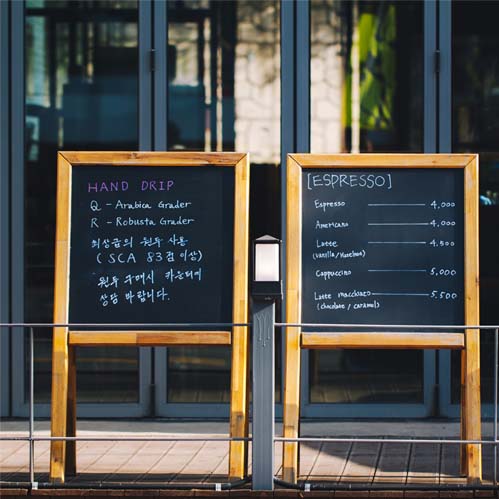 HAND DRIP
Q - Arabica Grader
R - Robusta Grader
최상급의 원두 사용
( SCA 83점 이상)
원두 구매시 카운터에
상담 바랍니다.
[ESPRESSO]
Espresso 4,000
Americano 4,000
Latte 4,500
(vanilla / Hazelnut)
Cappuccino 5,000
Latte macchiato 5,500
(chocolate / caramel)